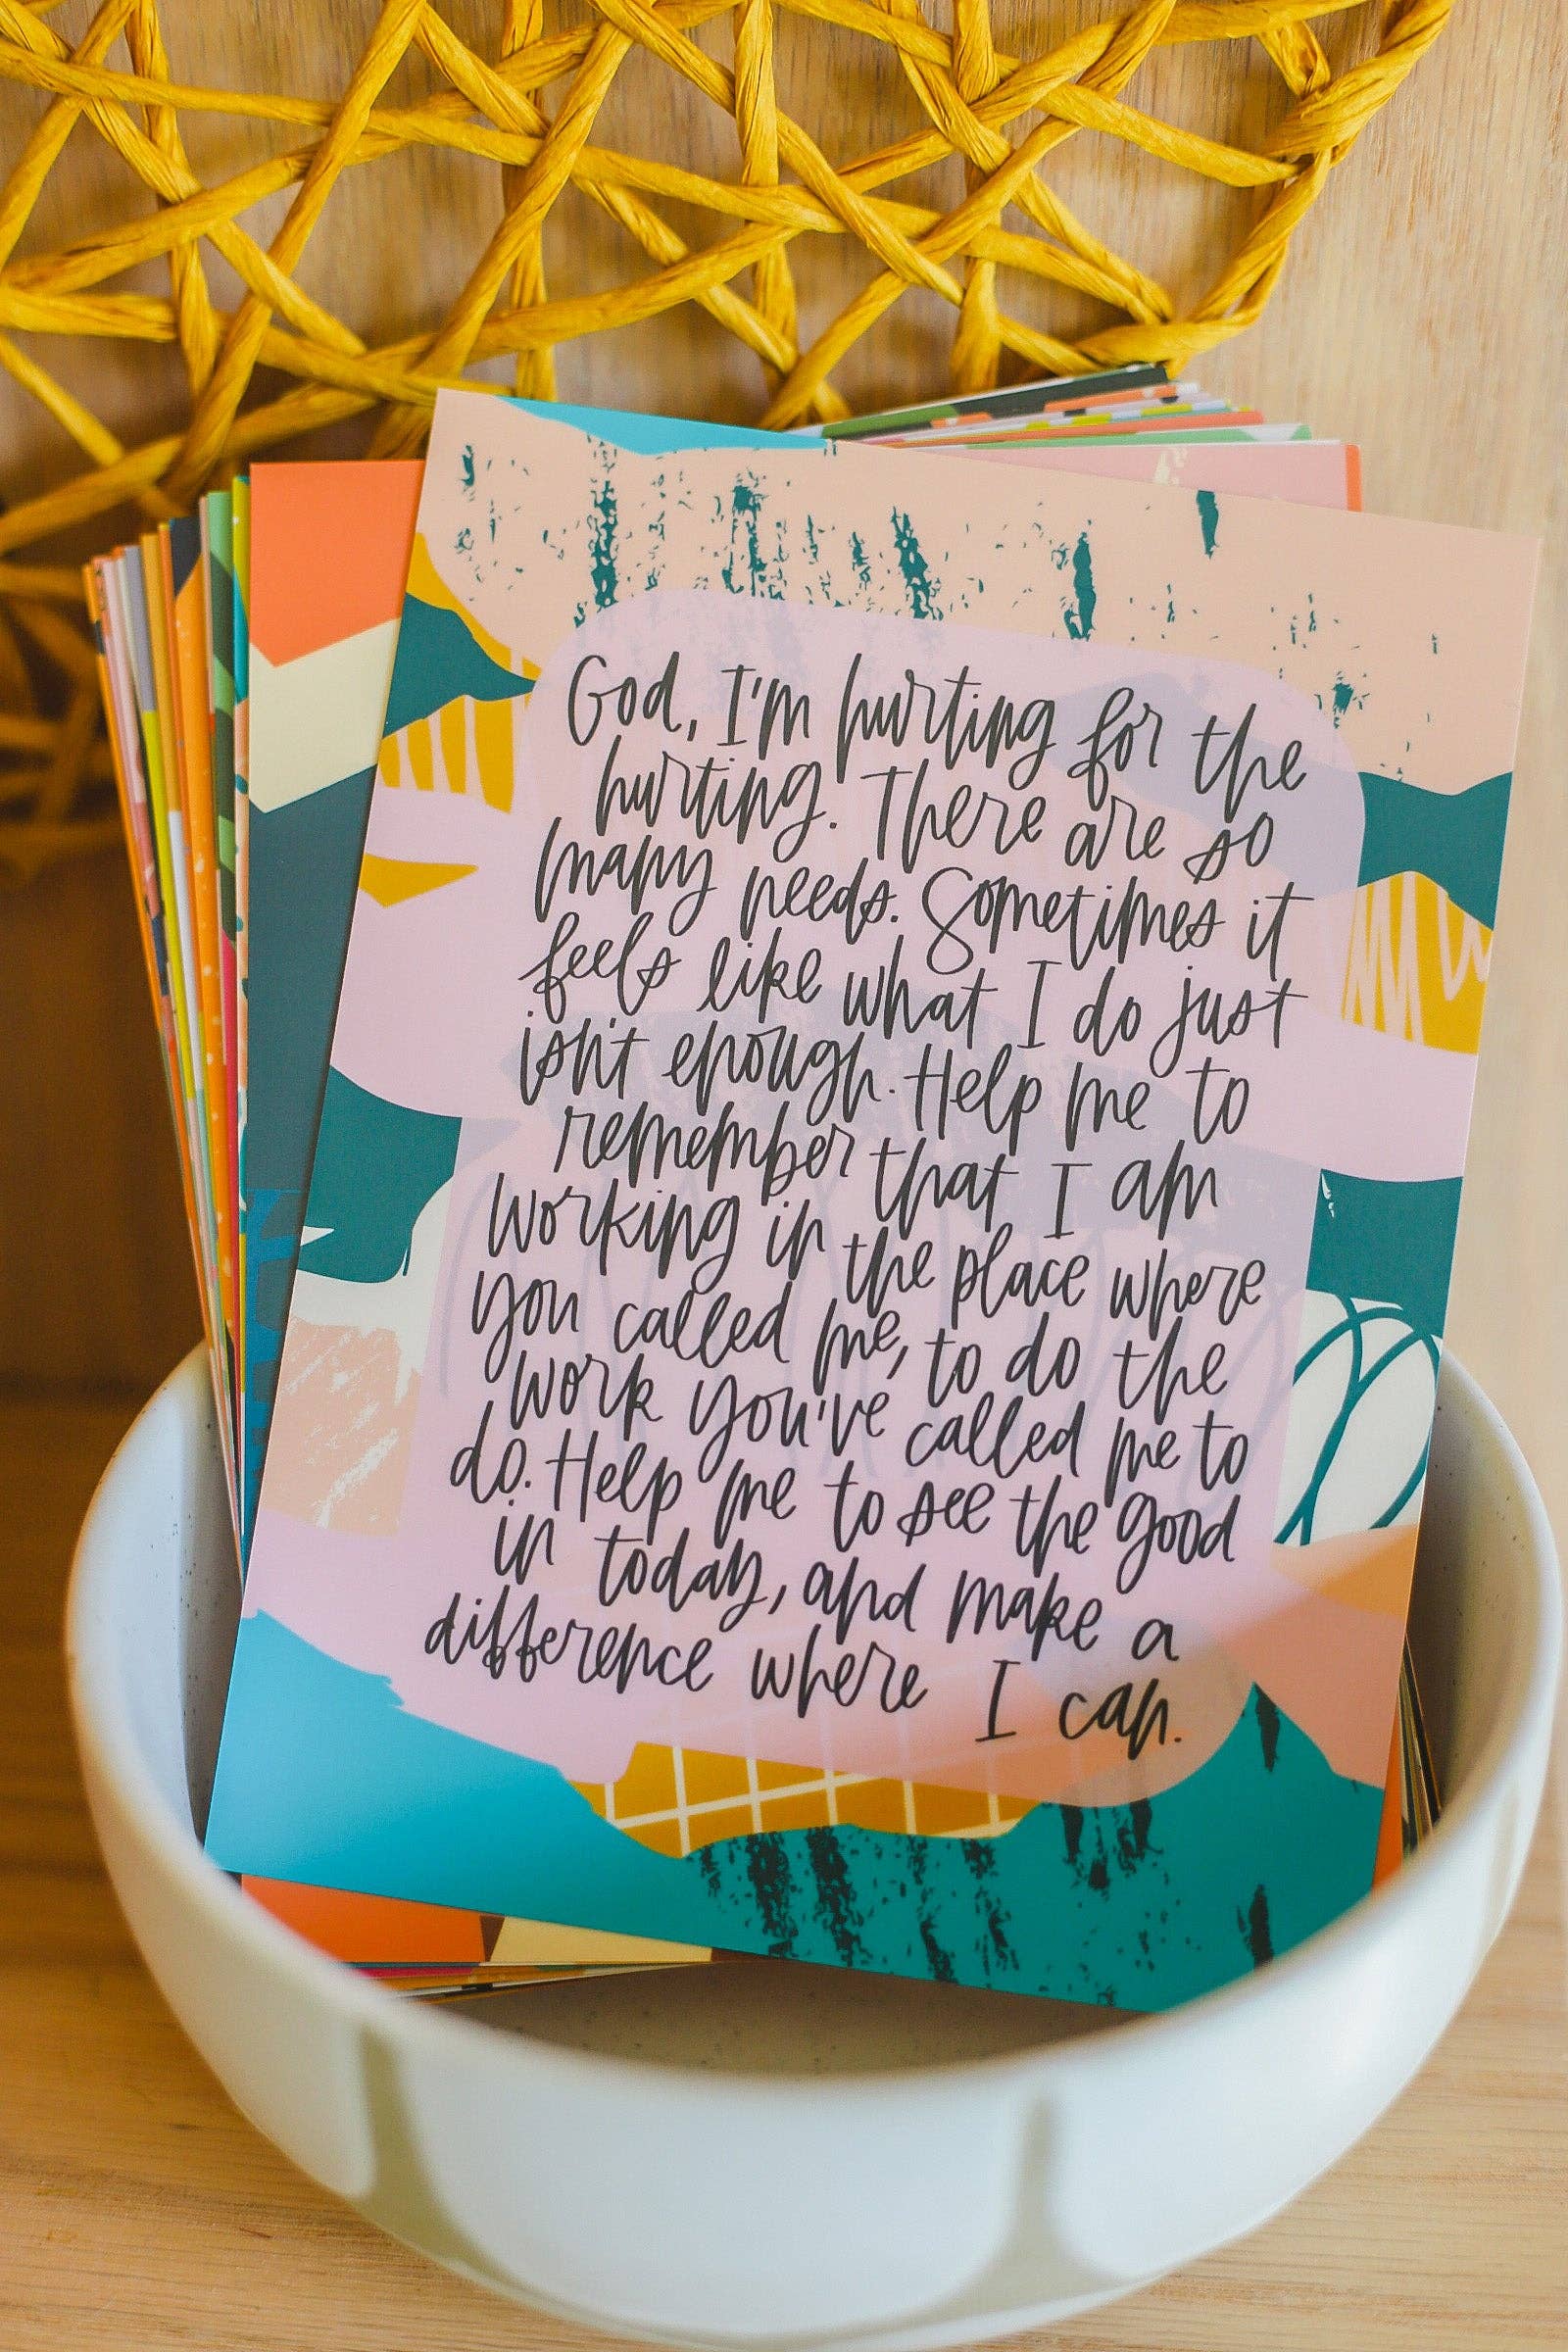 God, I'm hurting for the
hurting. There are so
many needs. Sometimes it
feels like what I do just
isn't enough. Help me to
remember that I am
working in the place where
you called me, to do the
work you've called me to
do. Help me to see the good
in today, and make a
difference where I can.